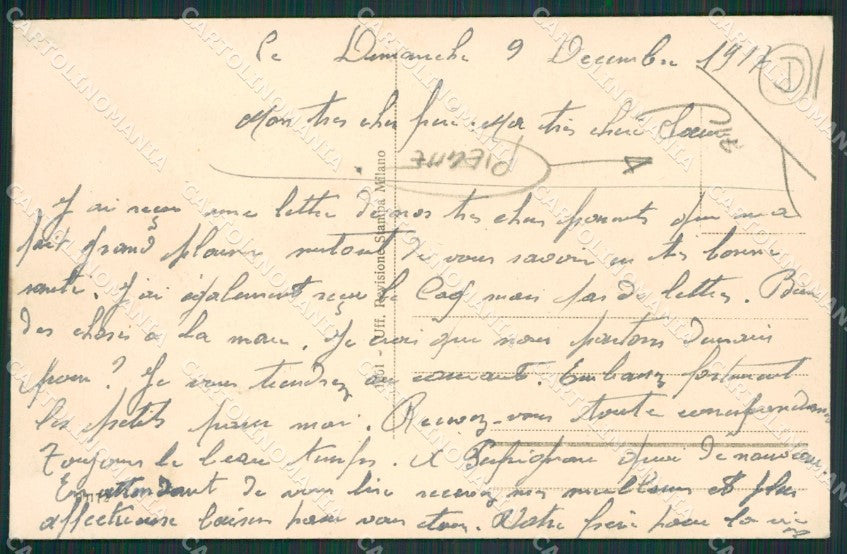 Le Dimanche 9 Decembre 1917
Mon tres cher frere. Ma tres chere Soeur
J'ai reçu une lettre de nos tres chers parents qui m'a
fait grand plaisir surtout de vous savoir en très bonne
santé. J'ai également reçu le Caq mais pas de lettre. Bien
des choses à la main. Je crois que nous partons demain
pour ? Je vous tiendrez au courant. Embassez fortement
les petits pour moi. Recevez-vous toute correspondance
Toujours le beau temps. A Perpignan quoi de nouveau
En attendant de vous lire recevez mes meilleurs et plus
affectueux baisers pour vous tous. Votre frere pour la vie
- Uff. Revisione Stampa Milano
PIEMME
CARTOLINOMANIA